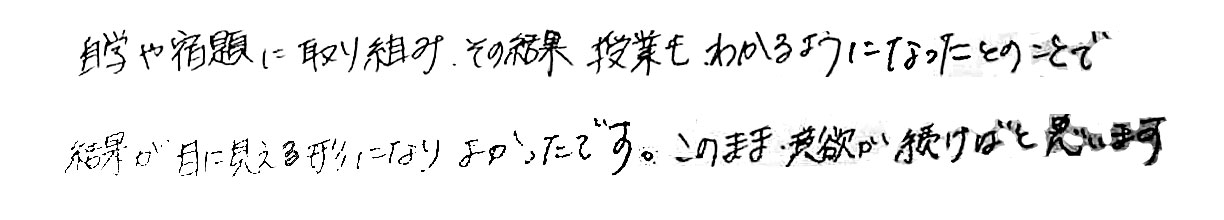 自学や宿題に取り組み、その結果 授業もわかるようになったとのことで
結果が目に見える形になりよかったです。このまま意欲が続けばと思います